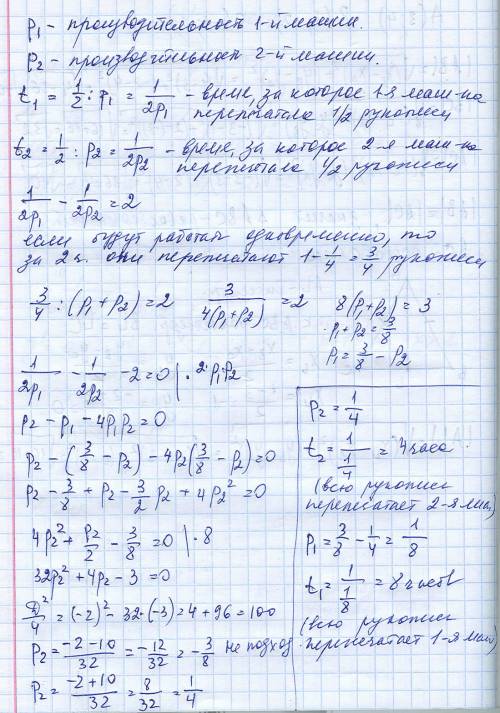 p₁ - производительность 1-й машин.
p₂ - производительность 2-й машин.
t₁ = 1/2 : p₁ = 1/(2p₁) - време, за которое 1-я маш-ка
перепечатала 1/2 рукописи
t₂ = 1/2 : p₂ = 1/(2p₂) - время, за которое 2-я маш-ка
перепечатала 1/2 рукописи
1/(2p₁) - 1/(2p₂) = 2
если будут работать одновременно, то
за 2ч. они перепечатают 1 - 1/4 = 3/4 рукописи
3/4 : (p₁ + p₂) = 2 3/(4(p₁ + p₂)) = 2 8(p₁ + p₂) = 3
p₁ + p₂ = 3/8
p₁ = 3/8 - p₂
1/(2p₁) - 1/(2p₂) - 2 = 0 | · 2 · p₁ · p₂
p₂ - p₁ - 4p₁p₂ = 0
p₂ - (3/8 - p₂) - 4p₂(3/8 - p₂) = 0
p₂ - 3/8 + p₂ - 3/2 p₂ + 4p₂² = 0
4p₂² + p₂/2 - 3/8 = 0 | · 8
32p₂² + 4p₂ - 3 = 0
/4 = (-2)² - 32 · (-3) = 4 + 96 = 100
p₂ = (-2 - 10)/32 = -12/32 = -3/8 не подход.
p₂ = (-2 + 10)/32 = 8/32 = 1/4
p₂ = 1/4
t₂ = 1/(1/4) = 4 часа.
(всю рукопись
перепечатает 2-я маш.)
p₁ = 3/8 - 1/4 = 1/8
t₁ = 1/(1/8) = 8 часов
(всю рукопись
перепечатает 1-я маш)